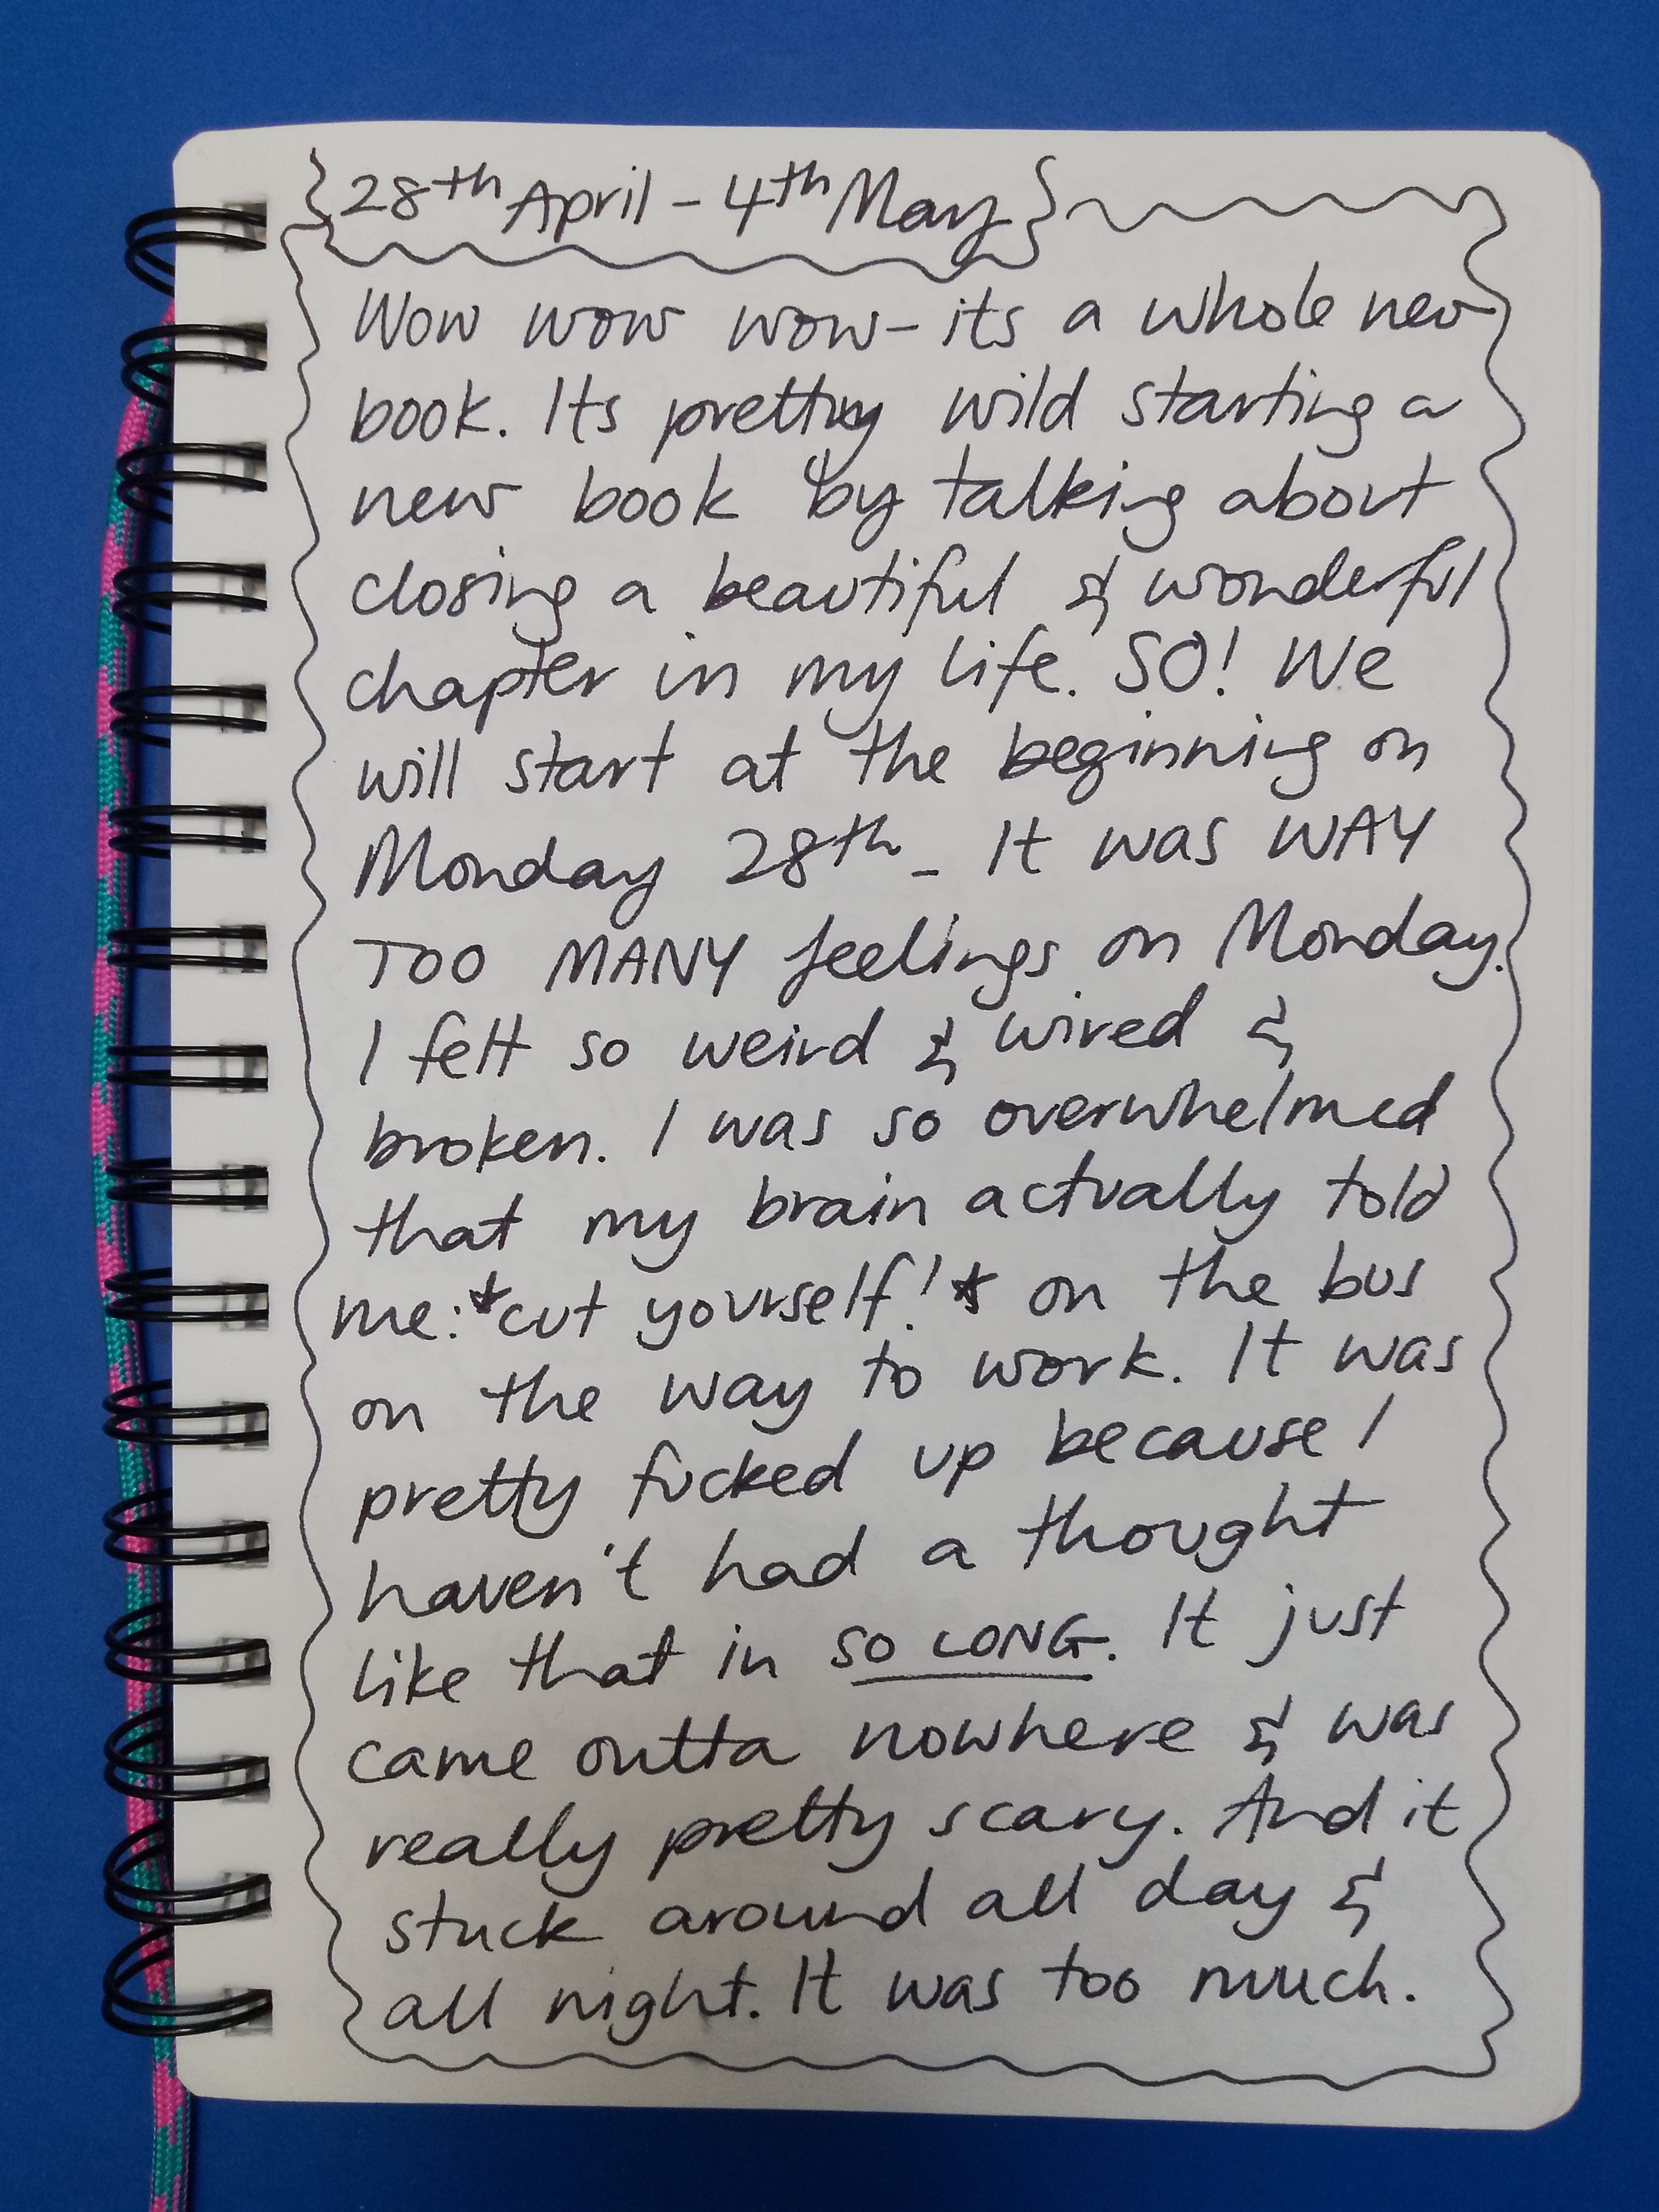 28th April - 4th May
Wow wow wow - its a whole new
book. Its pretty wild starting a
new book by talking about
closing a beautiful & wonderful
chapter in my life. SO! We
will start at the beginning on
Monday 28th - It was WAY
TOO MANY feelings on Monday.
I felt so weird & wired &
broken. I was so overwhelmed
that my brain actually told
me: *cut yourself!* on the bus
on the way to work. It was
pretty fucked up because I
haven't had a thought
like that in SO LONG. It just
came outta nowhere & was
really pretty scary. And it
stuck around all day &
all night. It was too much.